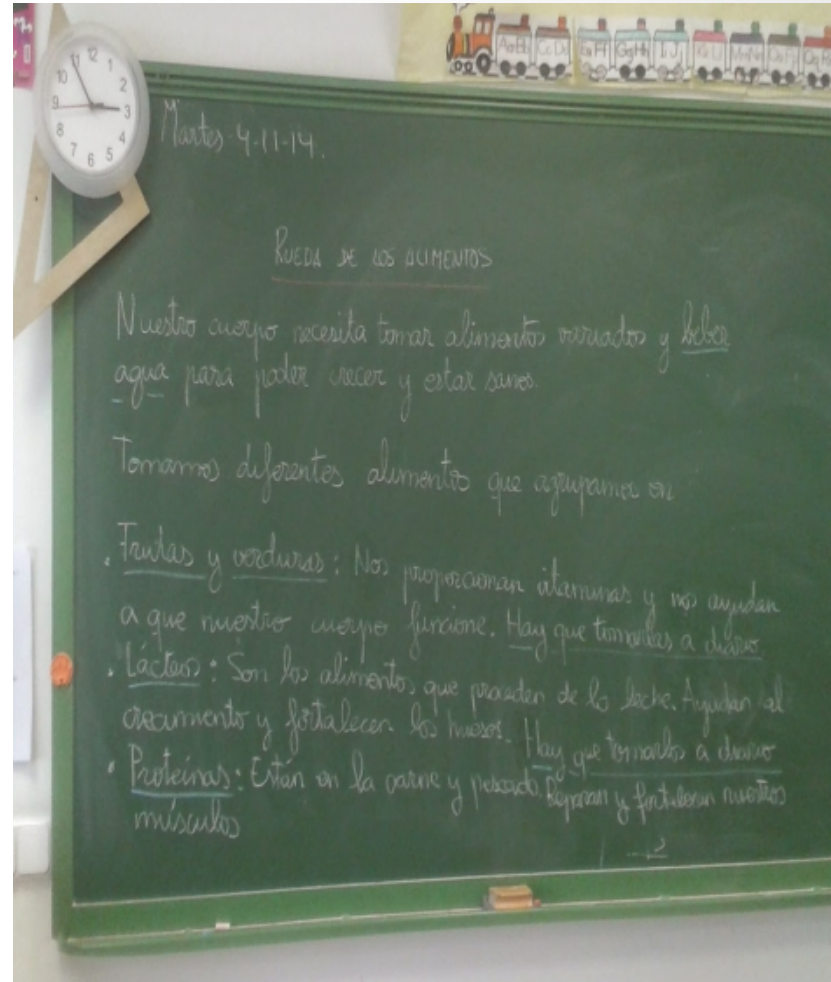 AaBb CcDd EeFf GgHh IiJj
12 1 2 3 4 5 6 7 8 9 10 11
Martes 4-11-14.
RUEDA DE LOS ALIMENTOS
Nuestro cuerpo necesita tomar alimentos variados y beber
agua para poder crecer y estar sanos.
Tomamos diferentes alimentos que agrupamos en
. Frutas y verduras: Nos proporcionan vitaminas y nos ayudan
a que nuestro cuerpo funcione. Hay que tomarlas a diario
. Lácteos: Son los alimentos que proceden de la leche. Ayudan al
crecimiento y fortalecen los huesos. Hay que tomarlos a diario
. Proteínas: Están en la carne y pescado. Reparan y fortalecen nuestros
músculos